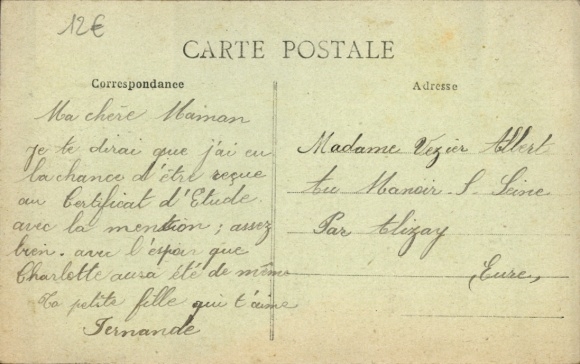 12€
CARTE POSTALE
Correspondance
Ma chère Maman
je te dirai que j'ai eu
la chance d'être reçue
au Certificat d'Etude
avec la mention ; assez
bien. avec l'espoir que
Charlotte aura été de même
Ta petite fille qui t'aime
Fernande
Adresse
Madame Vezier Albert
Au Manoir-S-Seine
Par Alizay
Eure,